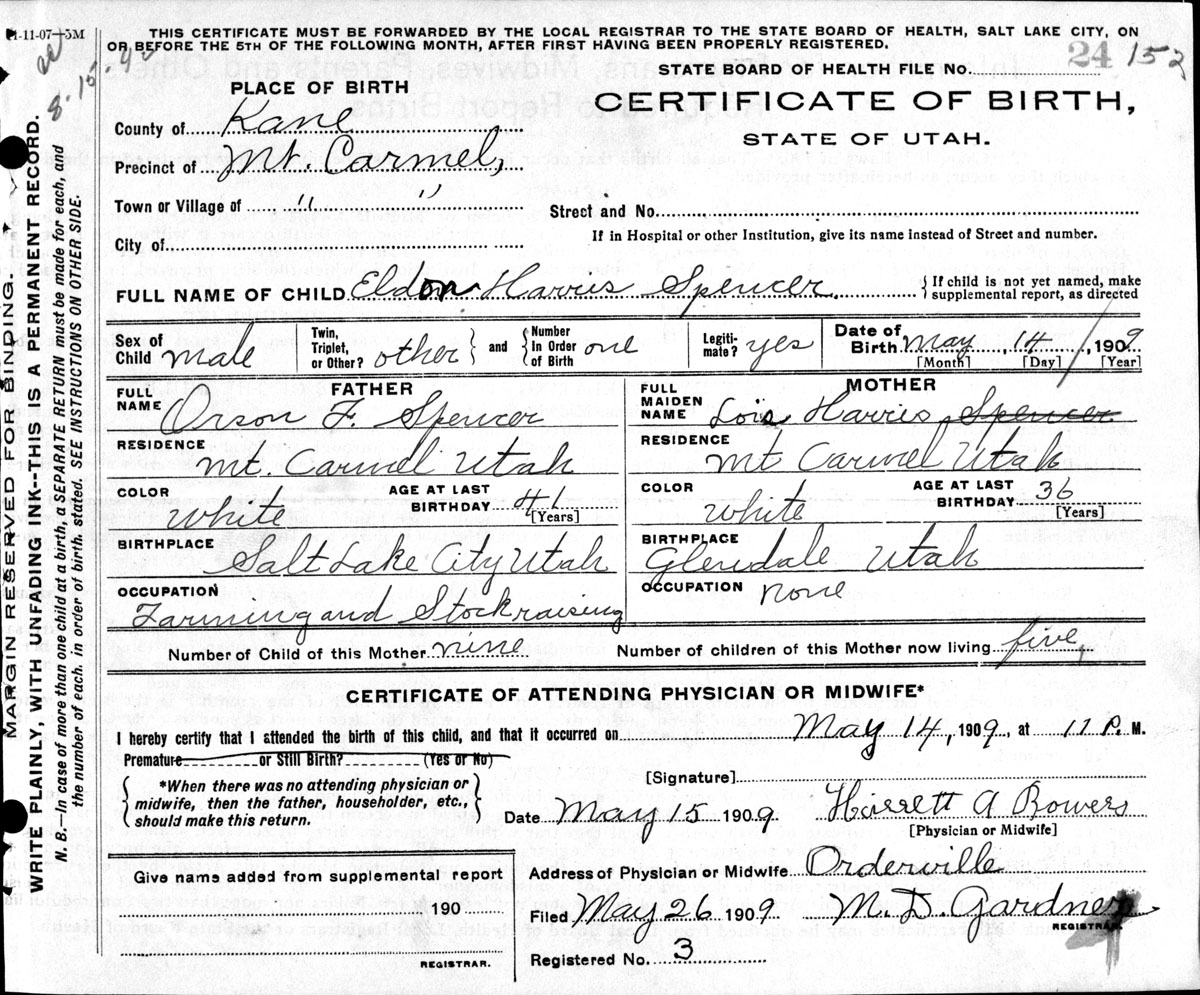 1-11-07—3M
THIS CERTIFICATE MUST BE FORWARDED BY THE LOCAL REGISTRAR TO THE STATE BOARD OF HEALTH, SALT LAKE CITY, ON
OR BEFORE THE 5TH OF THE FOLLOWING MONTH, AFTER FIRST HAVING BEEN PROPERLY REGISTERED.
STATE BOARD OF HEALTH FILE No. 24 152
PLACE OF BIRTH
CERTIFICATE OF BIRTH,
STATE OF UTAH.
County of Kane
Precinct of Mt. Carmel,
Town or Village of " "
Street and No.
City of
If in Hospital or other Institution, give its name instead of Street and number.
FULL NAME OF CHILD Eldon Harris Spencer
If child is not yet named, make
supplemental report, as directed
Sex of Child male
Twin, Triplet, or Other? other
and
Number In Order of Birth one
Legiti- mate? yes
Date of Birth May, 14, 1909
[Month] [Day] [Year]
FATHER
FULL NAME Orson F. Spencer
RESIDENCE Mt. Carmel Utah
COLOR White
AGE AT LAST BIRTHDAY 41 [Years]
BIRTHPLACE Salt Lake City Utah
OCCUPATION Farming and Stockraising
MOTHER
FULL MAIDEN NAME Lois Harris, Spencer
RESIDENCE Mt Carmel Utah
COLOR White
AGE AT LAST BIRTHDAY 36 [Years]
BIRTHPLACE Glendale Utah
OCCUPATION none
Number of Child of this Mother nine
Number of children of this Mother now living five
CERTIFICATE OF ATTENDING PHYSICIAN OR MIDWIFE*
I hereby certify that I attended the birth of this child, and that it occurred on May 14, 1909, at 11 P. M.
Premature or Still Birth? (Yes or No)
*When there was no attending physician or
midwife, then the father, householder, etc.,
should make this return.
[Signature]
Date May 15 1909 Harrett A Bowers
[Physician or Midwife]
Give name added from supplemental report
190
REGISTRAR.
Address of Physician or Midwife Orderville
Filed May 26 1909 M. D. Gardner
REGISTRAR.
Registered No. 3
MARGIN RESERVED FOR BINDING
WRITE PLAINLY, WITH UNFADING INK--THIS IS A PERMANENT RECORD.
N. B.—In case of more than one child at a birth, a SEPARATE RETURN must be made for each, and
the number of each, in order of birth, stated. SEE INSTRUCTIONS ON OTHER SIDE.